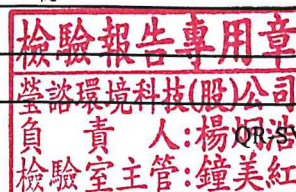 檢驗報告專用章
瑩諮環境科技(股)公司
負責人:楊
QR-
檢驗室主管:鐘美紅